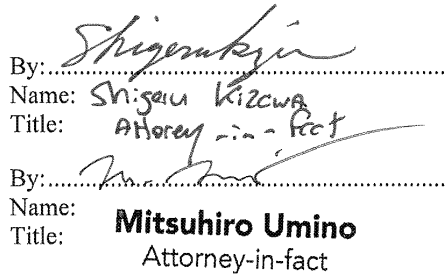 By:
Name: Shigeru Kizewa
Title: Attorey-in-fact
By:
Name: Mitsuhiro Umino
Title: Attorney-in-fact